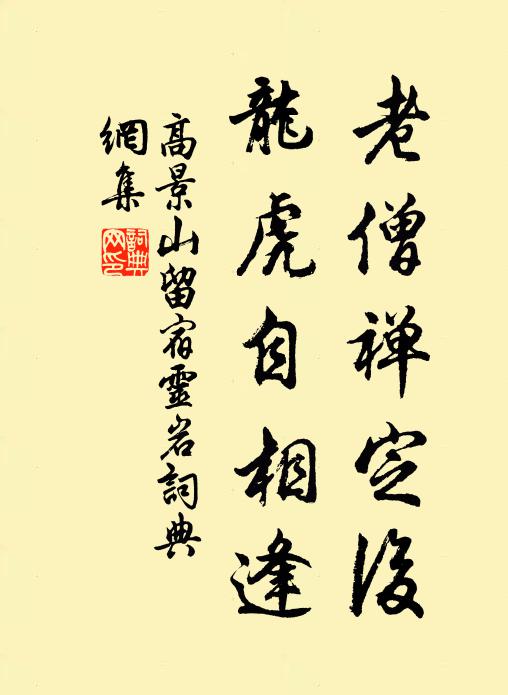 老僧禅定後
龍虎自相逢
高景山留宿靈岩詞典
網集
詞典
网印